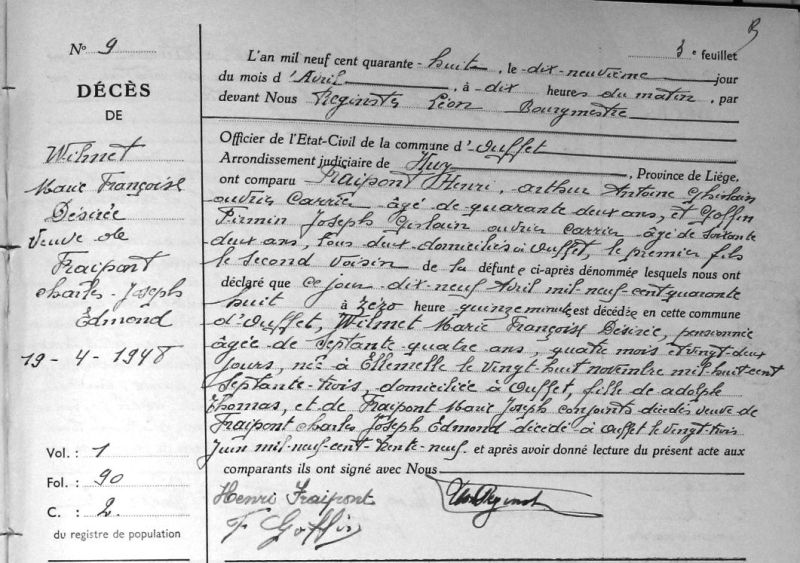 B
N° 9
DÉCÈS
DE
Wilmet
Marie Françoise
Désirée
Veuve de
Fraipont
Charles-Joseph
Edmond
19-4-1948
Vol. : 1
Fol. : 90
C. : 2
du registre de population
3e feuillet
L'an mil neuf cent quarante-huit, le dix-neuvième jour
du mois d'Avril, à dix heures du matin, par
devant Nous Reginster Léon Bourgmestre
Officier de l'Etat-Civil de la commune d'Ouffet
Arrondissement judiciaire de Huy, Province de Liége,
ont comparu Fraipont Henri, arthur Antoine Ghislain
ouvrier Carrier âgé de quarante deux ans, et Goffin
Firmin Joseph Gislain ouvrier carrier âgé de soixante
deux ans, tous deux domiciliés à Ouffet, le premier fils
le second voisin de la défunte ci-après dénommée lesquels nous ont
déclaré que ce jour dix-neuf Avril mil-neuf-cent quarante
huit à zéro heure quinze minutes est décédée en cette commune
d'Ouffet, Wilmet Marie Françoise Désirée, pensionnée
âgée de septante-quatre ans, quatre mois et vingt-deux
jours, née à Ellemelle le vingt-huit novembre mil-huit-cent
septante-trois, domiciliée à Ouffet, fille de adolphe
Thomas, et de Fraipont Marie Joseph conjoints décédés veuve de
Fraipont Charles Joseph Edmond décédé à Ouffet le vingt trois
Juin mil-neuf-cent-trente-neuf. et après avoir donné lecture du présent acte aux
comparants ils ont signé avec Nous
Henri Fraipont
F. Goffin